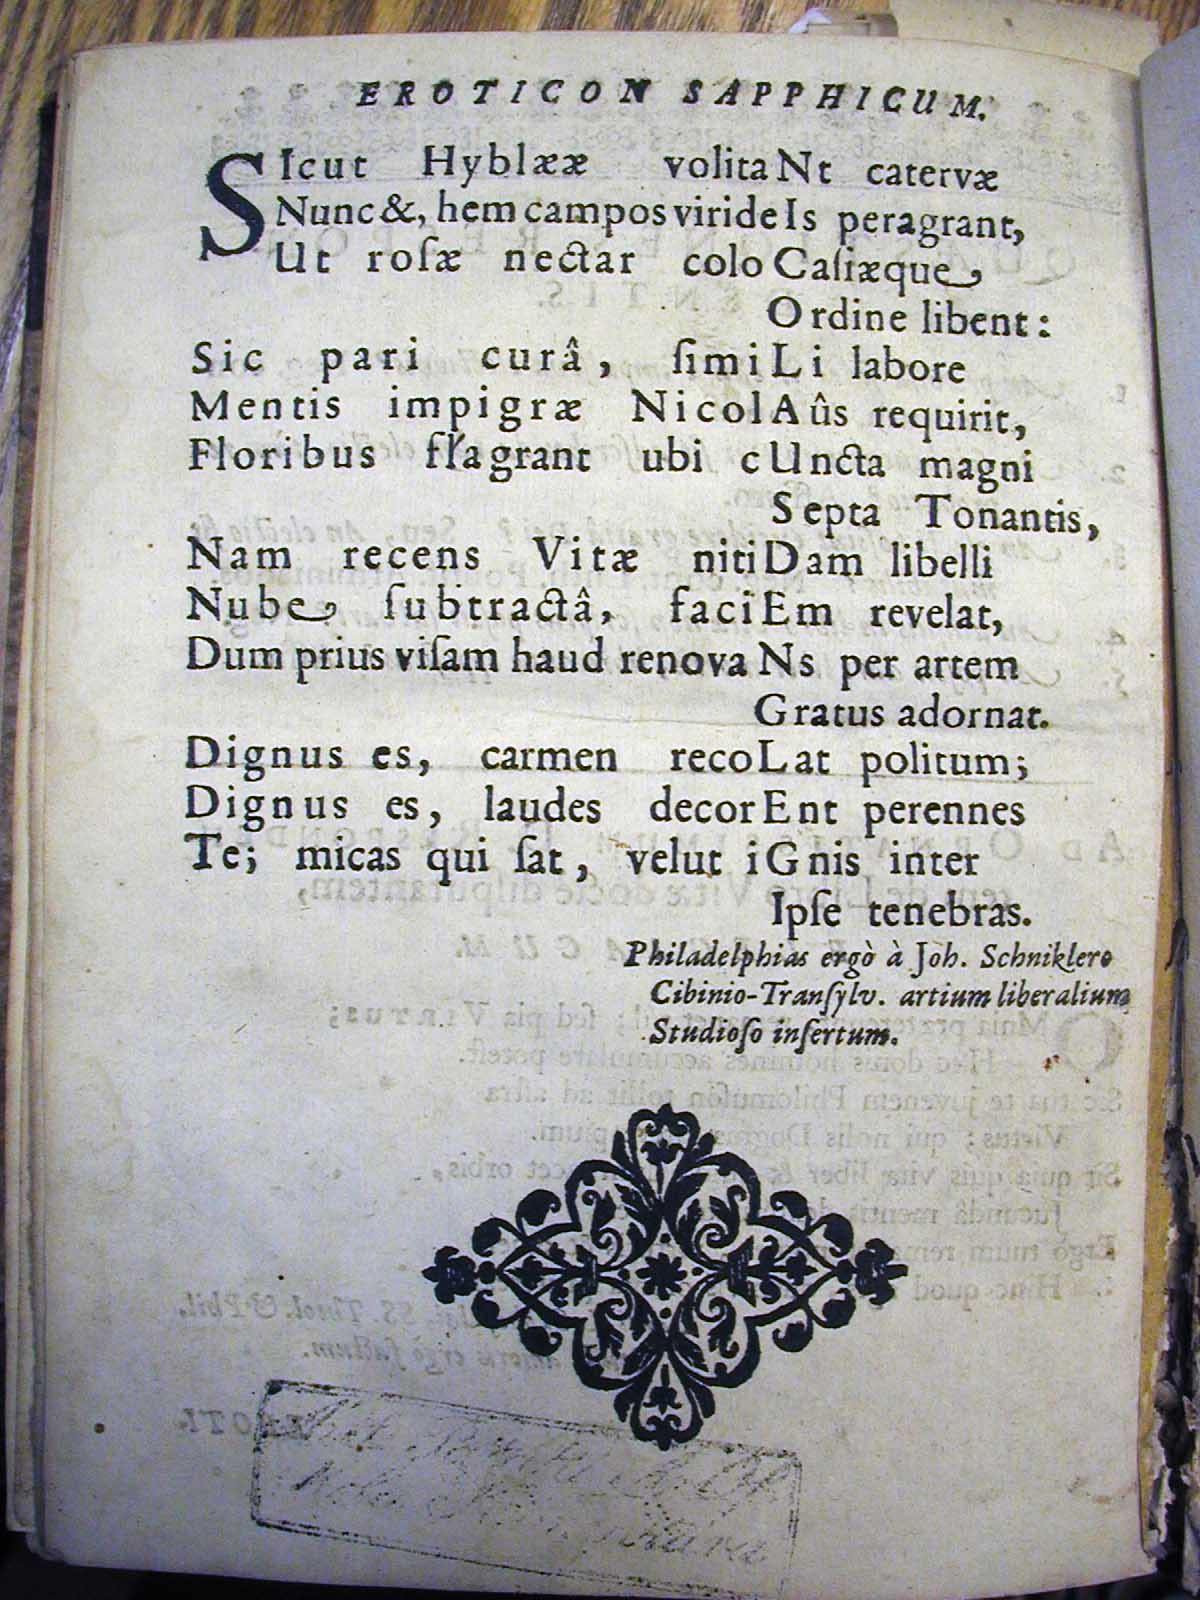 EROTICON SAPPHICUM.
SIcut Hyblææ volitaNt catervæ
Nunc &, hem campos virideIs peragrant,
Ut roſæ nectar coloCaſiæque
Ordine libent:
Sic pari curâ, ſimiLi labore
Mentis impigræ NicolAûs requirit,
Floribus flagrant ubi cUncta magni
Septa Tonantis,
Nam recens Vitæ nitiDam libelli
Nube ſubtractâ, faciEm revelat,
Dum prius viſam haud renovaNs per artem
Gratus adornat.
Dignus es, carmen recoLat politum;
Dignus es, laudes decorEnt perennes
Te; micas qui ſat, velut iGnis inter
Ipſe tenebras.
Philadelphias ergò à Joh. Schniklero
Cibinio-Tranſylv. artium liberalium
Studioſo inſertum.